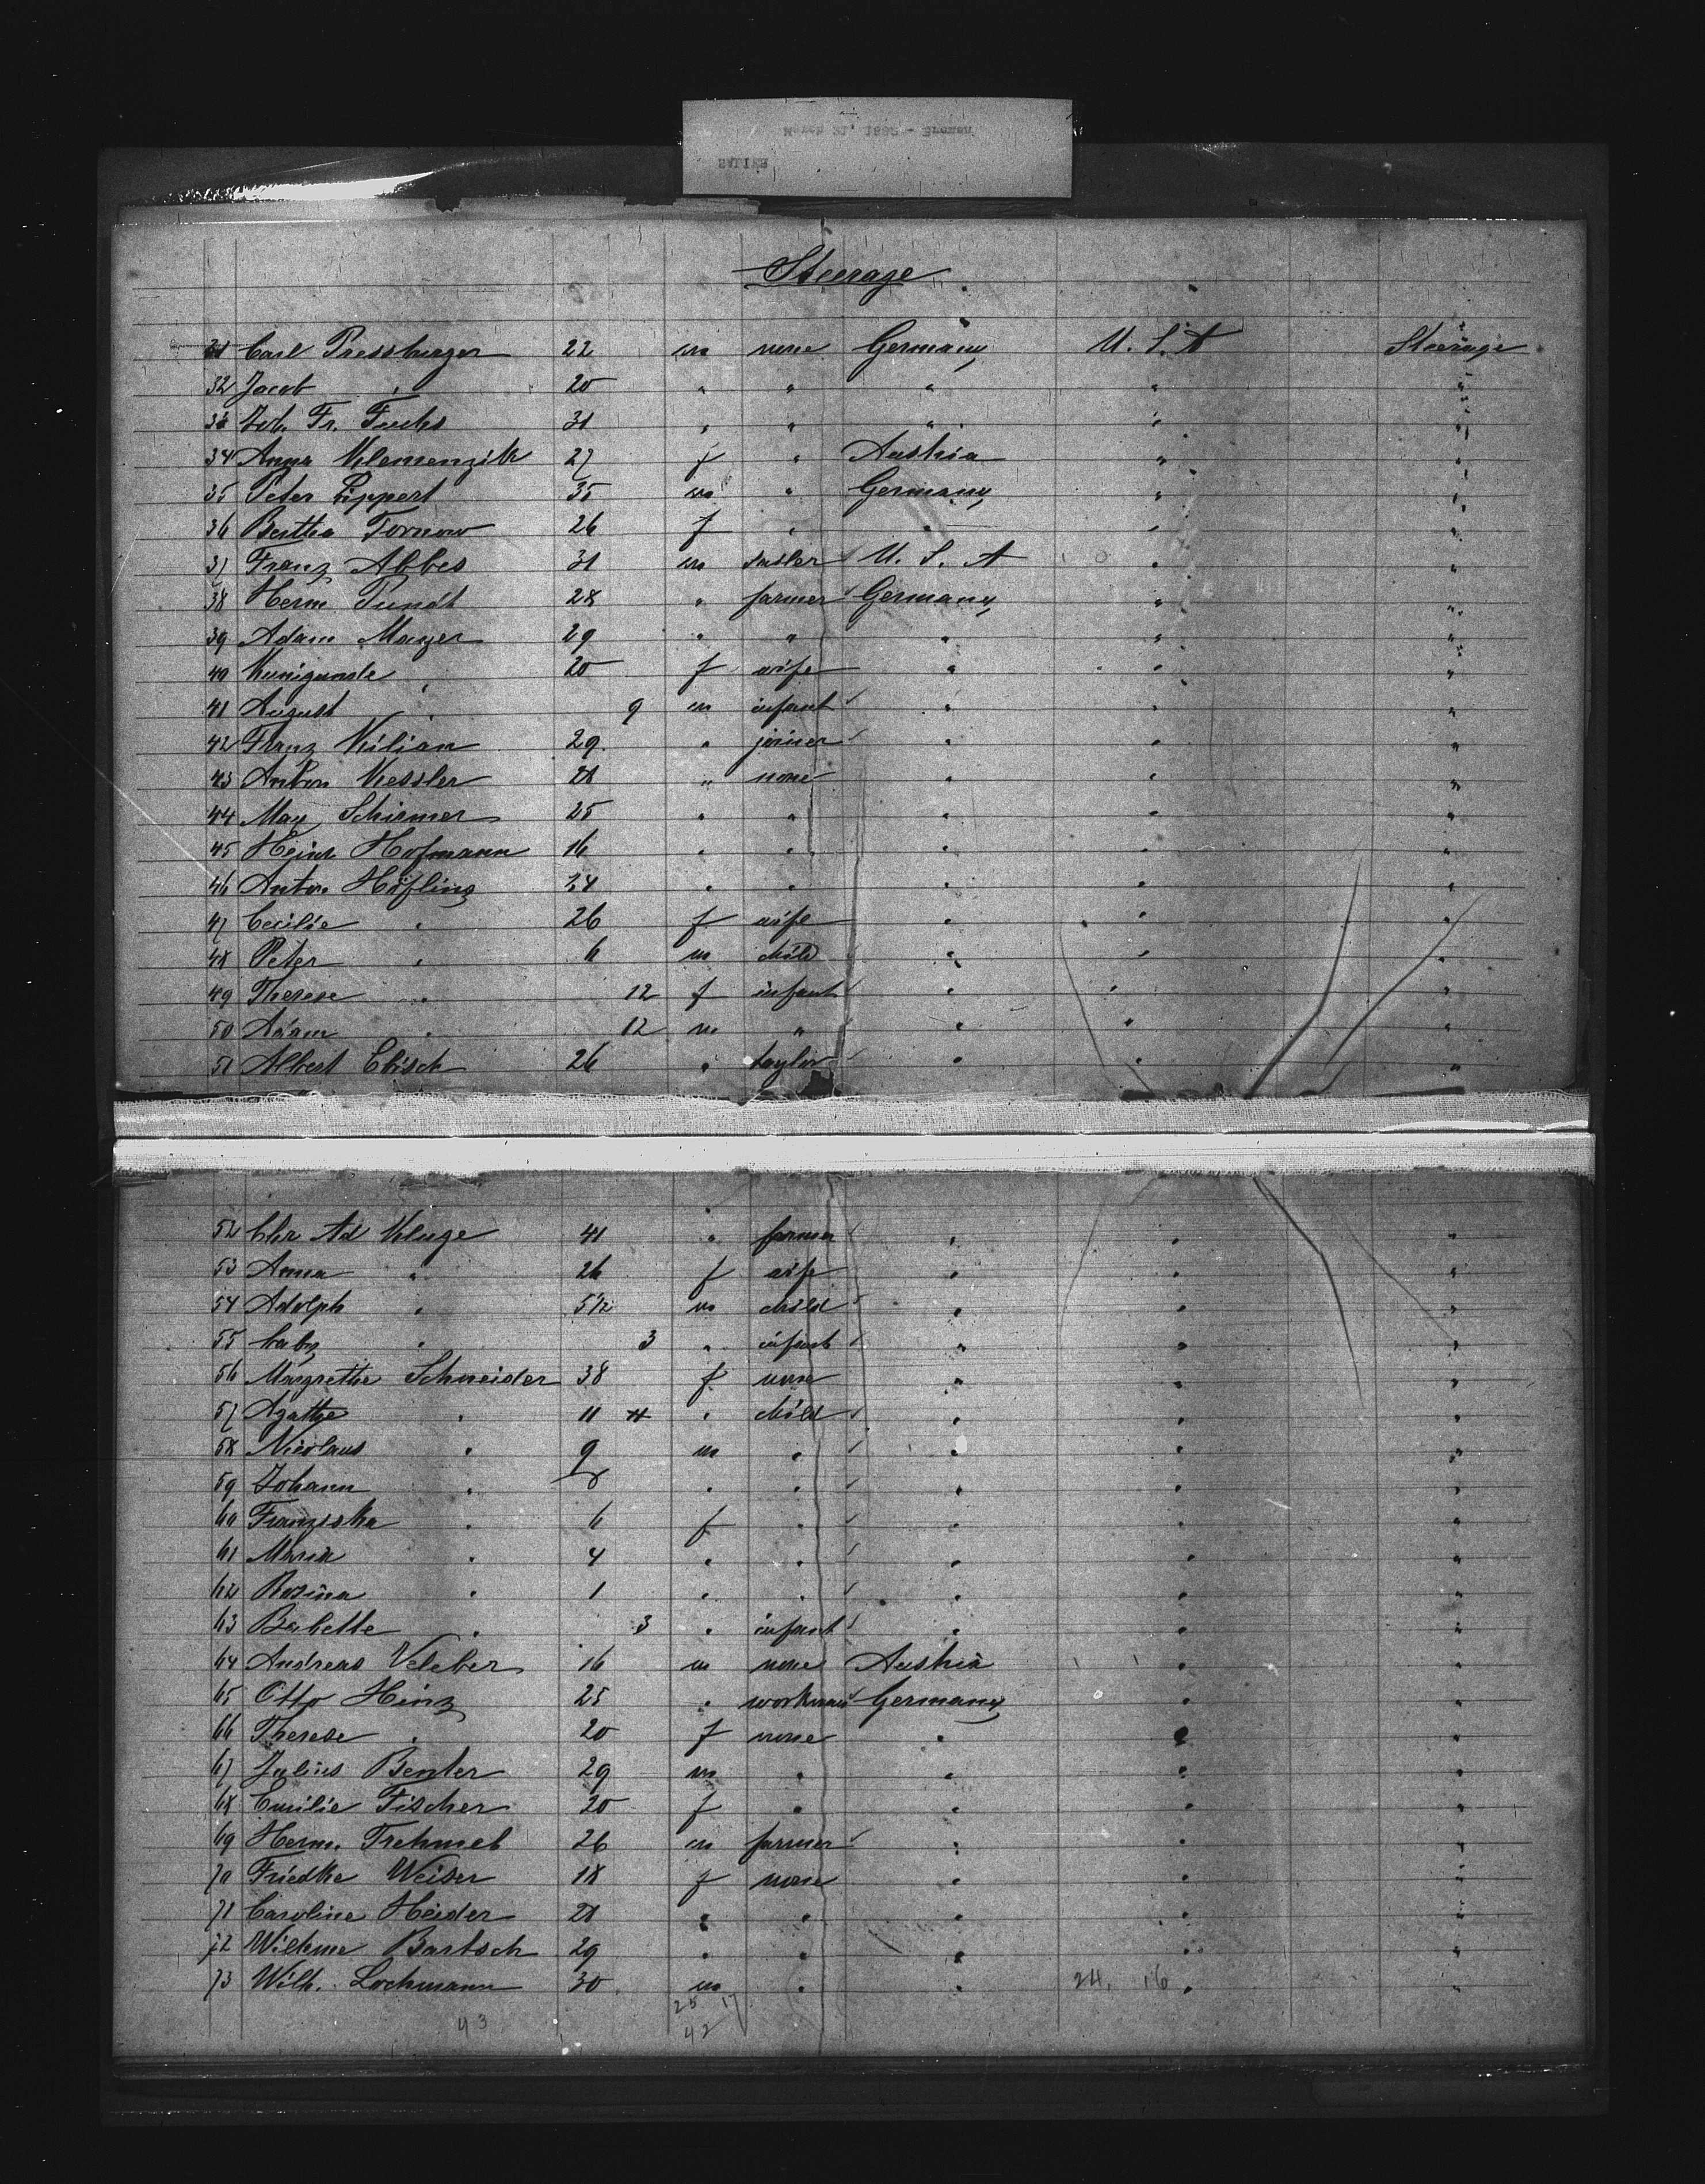 March 21, 1882 - Bremen
SALIER
Steerage
31 Carl Pressburger 22 m none Germany U. S. A Steerage
32 Jacob " 20 " " " " "
33 Joh. Fr. Fuchs 31 " " " " "
34 Anna Klemenzik 27 f " Austria " "
35 Peter Lippert 35 m " Germany " "
36 Bertha Tornow 26 f " " " "
37 Franz Abbes 31 m U. S. A " "
38 Herm. Pundt 28 " farmer Germany " "
39 Adam Mayer 29 " " " " "
40 Kunigunde " 20 f wife " " "
41 August " 9 m infant " " "
42 Franz Kilian 29 " joiner " " "
43 Anton Kessler 28 " none " " "
44 Max Schirmer 25 " " " " "
45 Heinr. Hofmann 16 " " " " "
46 Anton Höfling 24 " " " " "
47 Cecilie " 26 f wife " " "
48 Peter " 6 m child " " "
49 Therese " 12 f infant " " "
50 Adam " 12 m " " " "
51 Albert Ebisch 26 " taylor " " "
52 Chr Ad Kluge 41 " farmer " " "
53 Anna " 26 f wife " " "
54 Adolph " 5 1/2 m child " " "
55 " 3 " infant " " "
56 Margrethe Schneider 38 f none " " "
57 Agathe " 11 " child " " "
58 Nicolaus " 9 m " " " "
59 Johann " 8 " " " " "
60 Franziska " 6 f " " " "
61 Maria " 4 " " " " "
62 Rosina " 1 " " " " "
63 Babette " 3 " infant " " "
64 Andreas Veleber 16 m none Austria " "
65 Otto Hinz 25 " workman Germany " "
66 Therese " 20 f none " " "
67 Julius Benter 29 m " " " "
68 Emilie Fischer 20 f " " " "
69 Herm. Trehmel 26 m farmer " " "
70 Friedke Weiser 18 f none " " "
71 Caroline Heider 28 " " " " "
72 Wilhme Bartsch 29 " " " " "
73 Wilh. Lochmann 30 m " " 24. 16 " "
43 25 17
42